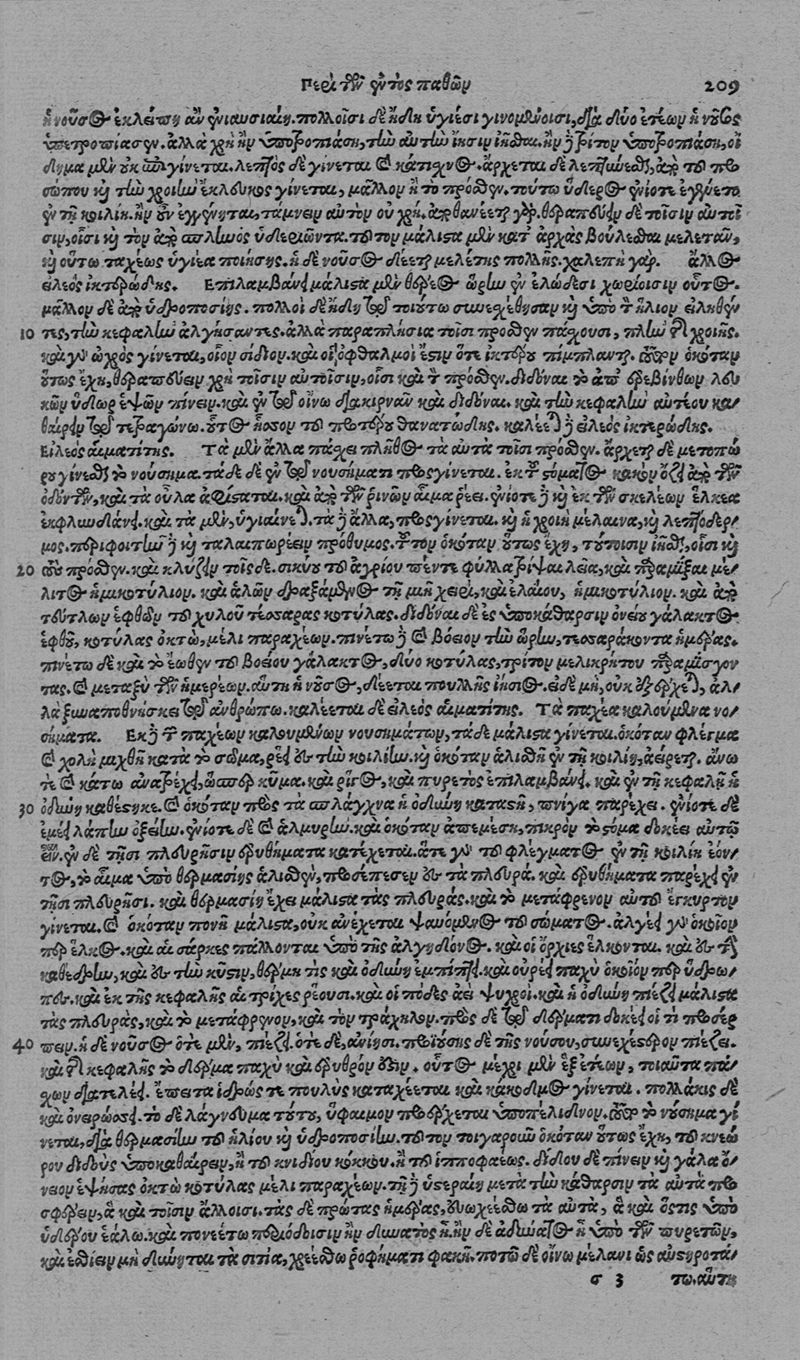 Περὶ τῶν ἐντὸς παθῶν 209
ἡ νοῦσος ἐκλείπῃ ἂν ἐνιαυσιαίη. πολλοῖσι δὲ ἤδη ὑγιέσι γινομένοισι, διὰ δύο ἐτέων ἡ νοῦσος
ὑπετροπίασεν. ἀλλὰ χρὴ ἢν ὑποτροπιάσῃ, τὴν αὐτὴν ἴησιν ἰῆσθαι. ἢν δὲ τρίτον ὑποτροπιάσῃ, οἴ
δημα μὲν οὐκ ἐπιγίνεται. λεπτὸς δὲ γίνεται καὶ κάτισχνος. ἄρχεται δὲ λεπτύνεσθαι, ἀπὸ τοῦ προ
σώπου καὶ τὴν χροιὴν ἔκλευκος γίνεται, μᾶλλον ἢ τὸ πρόσθεν. τούτῳ ὕδερος ἐνίοτε ἐγένετο
ἐν τῇ κοιλίῃ. ἢν οὖν ἐγγένηται, τάμνειν αὐτὸν οὐ χρή. ἀποθανέεται γάρ. θεραπεύειν δὲ τοῖσιν αὐτοῖ
σιν, οἷσι καὶ τὸν ἀπὸ σπληνὸς ὑδεριῶντα. τοῦτον μάλιστα μὲν κατ' ἀρχὰς βούλεσθαι μελετᾶν,
καὶ οὕτω ταχέως ὑγιέα ποιήσῃς. ἡ δὲ νοῦσος δέεται μελέτης πολλῆς. χαλεπὴ γάρ. ἄλλος
εἰλεὸς ἰκτερώδης. Ἐπιλαμβάνει μάλιστα μὲν θέρεος ὥρην ἐν ἑλώδεσι χωρίοισιν οὗτος.
μᾶλλον δὲ ἀπὸ ὑδροποσίης. πολλοὶ δὲ ἤδη τῷ τοιούτῳ συνεσχέθησαν καὶ ὑπὸ τὸν ἥλιον εἰληθέν
10 τες, τὴν κεφαλὴν ἀλγήσαντες. ἀλλὰ παραπλήσια τοῖσι πρόσθεν πάσχουσι, πλὴν τῆς χροιῆς.
καὶ γὰρ ὠχρὸς γίνεται, οἷον σίδιον. καὶ οἱ ὀφθαλμοὶ ἔστιν ὅτε ἰκτέρου πίμπλανται. τοῦτον ὁκόταν
οὕτως ἔχῃ, θεραπεύειν χρὴ τοῖσιν αὐτοῖσιν, οἷσι καὶ τὸν πρόσθεν. διδόναι τὸ ἀπ' ἐρεβίνθων λευ
κῶν ὕδωρ ἑψῶν πίνειν. καὶ ἐν τῷ οἴνῳ διακιρνᾶν καὶ διδόναι. καὶ τὴν κεφαλὴν αὐτέου κα/
θαίρειν τῷ τετραγώνῳ. οὗτος ἧσσον τοῦ προτέρου θανατώδης. καλέεται δὲ εἰλεὸς ἰκτερώδης.
Εἰλεὸς αἱματίτης. Τὰ μὲν ἄλλα πάσχει πλῆθος τὰ αὐτὰ τοῖσι πρόσθεν. ἄρχεται δὲ μετοπώ
ρου γίνεσθαι τὸ νούσημα. τάδε δὲ ἐν τῷ νουσήματι προσγίνεται. ἐκ τοῦ στόματος κακὸν ὄζει ἀπὸ τῶν
ὀδόντων, καὶ τὰ οὖλα ἀφίσταται. καὶ ἀπὸ τῶν ῥινῶν αἷμα ῥέει. ἐνίοτε δὲ καὶ ἐκ τῶν σκελέων ἕλκεα
ἐκφλυνδάνει. καὶ τὰ μὲν, ὑγιαίνεται. τὰ δὲ ἄλλα, προσγίνεται. καὶ ἡ χροιὴ μέλαινα, καὶ λεπτόδερ/
μος. περιφοιτῆν δὲ καὶ ταλαιπωρέειν πρόθυμος. τοῦτον ὁκόταν οὕτως ἔχῃ, τούτοισιν ἰῆσθαι, οἷσι καὶ
20 τὸ πρόσθεν. καὶ κλύζειν τοῖσδε. σικύου τοῦ ἀγρίου πέντε φύλλα τρῖψαι λεῖα, καὶ παραμῖξαι μέ/
λιτος ἡμικοτύλιον. καὶ ἁλῶν δραξάμενος τῇ μιῇ χειρὶ, καὶ ἐλαίου, ἡμικοτύλιον. καὶ ἀπὸ
τεύτλων ἑφθῶν τοῦ χυλοῦ τέσσαρας κοτύλας. διδόναι δὲ ἐς ὑποκάθαρσιν ὀνείου γάλακτος
ἑφθοῦ, κοτύλας ὀκτὼ, μέλι παραχέων. πινέτω δὲ καὶ βόειον τὴν ὥρην, τεσσαράκοντα ἡμέρας.
πινέτω δὲ καὶ τὸ ἕωθεν τοῦ βοείου γάλακτος, δύο κοτύλας, τρίτον μελικρήτου παραμίσγον
τας. καὶ μεταξὺ τῶν ἡμερέων. αὕτη ἡ νοῦσος, δέεται πουλλῆς ἰήσιος. εἰ δὲ μὴ, οὐκ ἐξέρχεται, ἀλ/
λὰ ξυναποθνήσκει τῷ ἀνθρώπῳ. καλέεται δὲ εἰλεὸς αἱματίτης. Τὰ παχέα καλούμενα νο/
σήματα. Ἐκ δὲ τῶν παχέων καλουμένων νουσημάτων, τάδε μάλιστα γίνεται. ὁκόταν φλέγμα
καὶ χολὴ μιχθῇ κατὰ τὸ σῶμα, ῥέει ἐς τὴν κοιλίην. καὶ ὁκόταν ἁλισθῇ ἐν τῇ κοιλίῃ, ἀείρεται. ἄνω
τε καὶ κάτω ἀναΐσσει, ὥσπερ κῦμα. καὶ ῥῖγος, καὶ πυρετὸς ἐπιλαμβάνει. καὶ ἐν τῇ κεφαλῇ ἡ
30 ὀδύνη καθέστηκε. καὶ ὁκόταν πρὸς τὰ σπλάγχνα ἡ ὀδύνη καταστῇ, πνῖγα παρέχει. ἐνίοτε δὲ
ἐμέει λάπην ὀξείην. ἐνίοτε δὲ καὶ ἁλμυρήν. καὶ ὁκόταν ἀπεμέσῃ, πικρὸν τὸ στόμα δοκέει αὐτῷ
εἶναι. ἐν δὲ τῇσι πλευρῇσιν ἐρυθήματα κατέχεται. ἅτε γὰρ τοῦ φλέγματος ἐν τῇ κοιλίῃ ἐόν/
τος, τὸ αἷμα ὑπὸ θερμασίης ἁλισθὲν, προσέπεσεν ἐς τὰ πλευρά. καὶ ἐρυθήματα παρέχει ἐν
τῇσι πλευρῇσι. καὶ θερμασίη ἔχει μάλιστα τὰς πλευράς. καὶ τὸ μετάφρενον αὐτοῦ ἔγκυρτον
γίνεται. καὶ ὁκόταν πονῇ μάλιστα, οὐκ ἀνέχεται ψαυόμενος τοῦ σώματος. ἀλγέει γὰρ ὁκοῖον
περ ἕλκος. καὶ αἱ σάρκες πάλλονται ὑπὸ τῆς ἀλγηδόνος. καὶ οἱ ὄρχιες ἕλκονται. καὶ ἐς τὴν
καθέδρην, καὶ ἐς τὴν κύστιν, θέρμη τις καὶ ὀδύνη ἐμπίπτει. καὶ οὐρέει παχὺ ὁκοῖον περ ὕδρω/
πες. καὶ ἐκ τῆς κεφαλῆς αἱ τρίχες ῥέουσι. καὶ οἱ πόδες ἀεὶ ψυχροί. καὶ ἡ ὀδύνη πιέζει μάλιστα
τὰς πλευρὰς, καὶ τὸ μετάφρενον, καὶ τὸν τράχηλον. πρὸς δὲ τῷ δέρματι δοκέει οἱ τι προσέρ
40 πειν. ἡ δὲ νοῦσος ὁτὲ μὲν, πιέζει. ὁτὲ δὲ, ἀνίησι. προϊούσης δὲ τῆς νούσου, συνεχέστερον πιέζει.
καὶ τῆς κεφαλῆς τὸ δέρμα παχὺ καὶ ἐρυθρόν ἐστιν. οὗτος μέχρι μὲν ἓξ ἐτέων, τοιαῦτα πά/
σχων διατελέει. ἔπειτα ἱδρώς τε πουλὺς καταχέεται καὶ κάκοδμος γίνεται. πολλάκις δὲ
καὶ ὀνειρώσσει. τὸ δὲ λάγνευμα τούτου, ὕφαιμον προέρχεται ὑποπέλιδνον. τοῦτο τὸ νούσημα γί
νεται, διὰ θερμασίην τοῦ ἡλίου καὶ ὑδροποσίην. τοῦτον τοιγαροῦν ὁκόταν οὕτως ἔχῃ, τοῦ κνεώ
ρου διδοὺς ὑποκαθαίρειν, ἢ τοῦ κνιδίου κόκκου. ἢ τοῦ ἱπποφαέως. δίδου δὲ πίνειν καὶ γάλα ὄ/
νειον ἑψήσας ὀκτὼ κοτύλας μέλι παραχέων. τῇ δὲ ὑστεραίῃ μετὰ τὴν κάθαρσιν τὰ αὐτὰ προ
σφέρειν, ἃ καὶ τοῖσιν ἄλλοισι. τὰς δὲ πρώτας ἡμέρας, εὐωχείσθω τὰ αὐτὰ, ἃ καὶ ὅστις ὑπὸ
ὑδέρου ἑάλω. καὶ πονεέτω περιόδοισιν ἢν δυνατὸς ᾖ. ἢν δὲ ἀδύνατος ᾖ ὑπὸ τῶν πυρετῶν,
καὶ ἐσθίειν μὴ δύνηται τὰ σιτία, χρεέσθω ῥοφήματι φακῇ. ποτῷ δὲ οἴνῳ μέλανι ὡς αὐστηροτά/
σ 3 τῳ. αὕτη